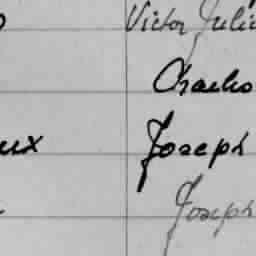 Victor Juli
Charles
ux Joseph
Joseph